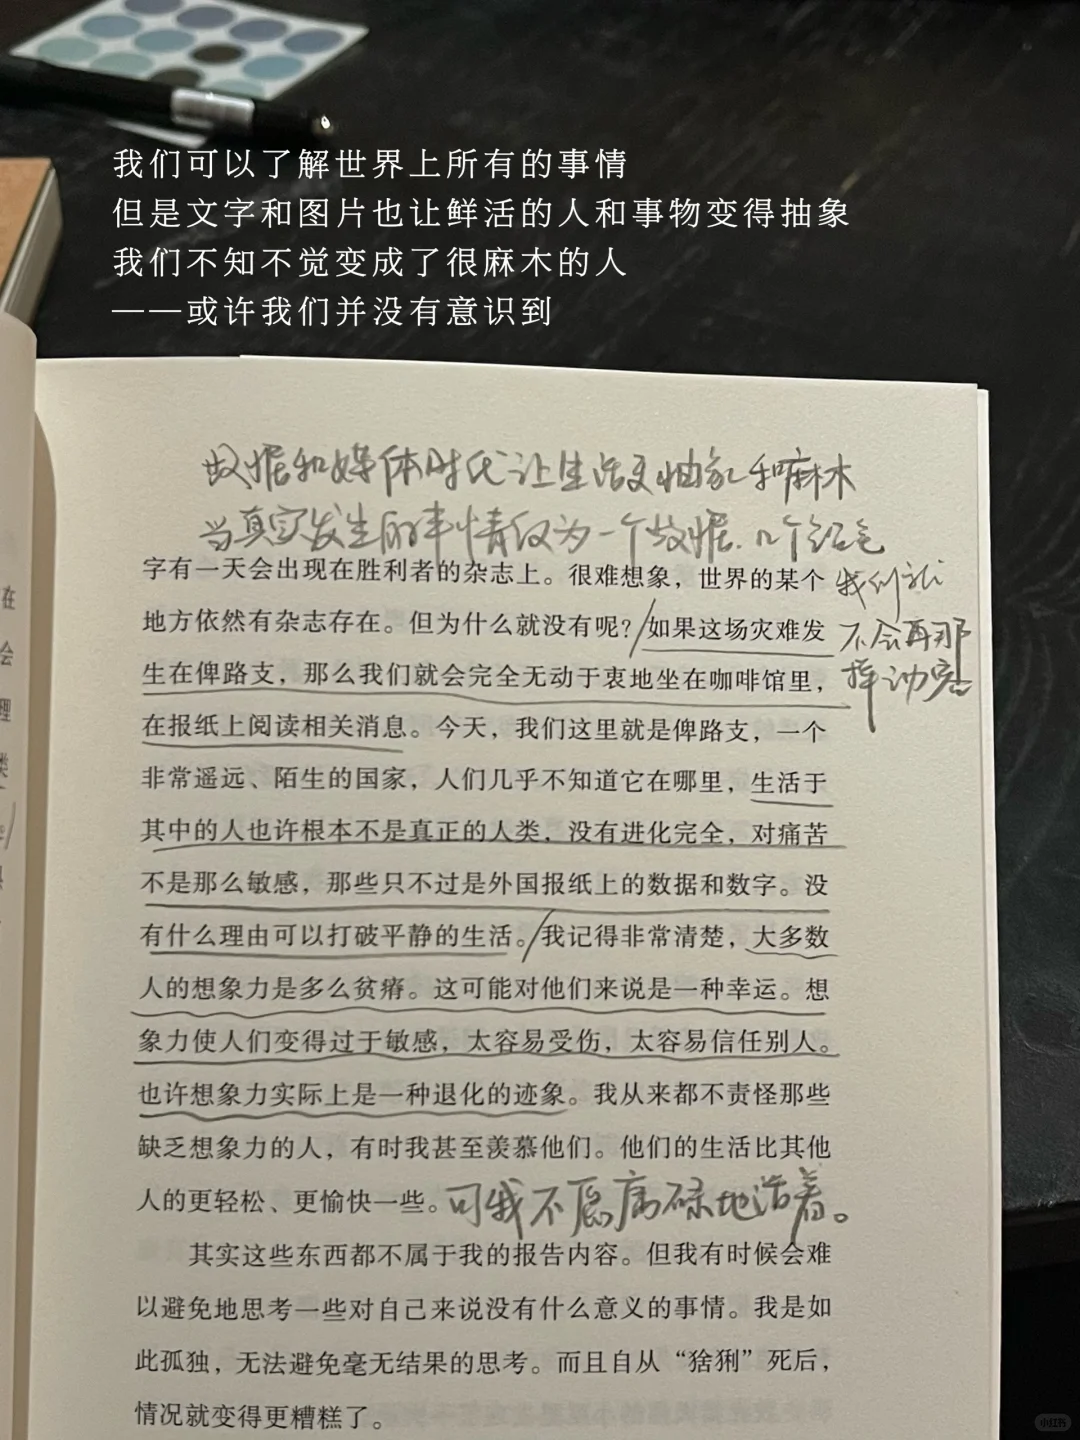 我们可以了解世界上所有的事情
但是文字和图片也让鲜活的人和事物变得抽象
我们不知不觉变成了很麻木的人
——或许我们并没有意识到
数据和媒体时代让生活更抽象和麻木
当真实发生的事情仅为一个数据、几个红色
字有一天会出现在胜利者的杂志上。很难想象，世界的某个
我们就
地方依然有杂志存在。但为什么就没有呢？如果这场灾难发
不会再那
生在俾路支，那么我们就会完全无动于衷地坐在咖啡馆里，
样动容
在报纸上阅读相关消息。今天，我们这里就是俾路支，一个
非常遥远、陌生的国家，人们几乎不知道它在哪里，生活于
其中的人也许根本不是真正的人类，没有进化完全，对痛苦
不是那么敏感，那些只不过是外国报纸上的数据和数字。没
有什么理由可以打破平静的生活。我记得非常清楚，大多数
人的想象力是多么贫瘠。这可能对他们来说是一种幸运。想
象力使人们变得过于敏感，太容易受伤，太容易信任别人。
也许想象力实际上是一种退化的迹象。我从来都不责怪那些
缺乏想象力的人，有时我甚至羡慕他们。他们的生活比其他
人的更轻松、更愉快一些。可我不愿庸碌地活着。
其实这些东西都不属于我的报告内容。但我有时候会难
以避免地思考一些对自己来说没有什么意义的事情。我是如
此孤独，无法避免毫无结果的思考。而且自从“猞猁”死后，
情况就变得更糟糕了。
在
会
理
类